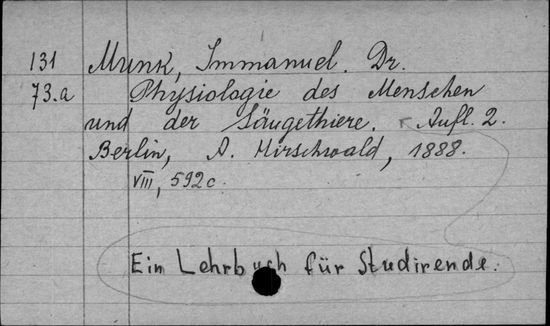 131 Munk, Immanuel. Dr.
73.a Physiologie des Menschen
und der Säugethiere. Aufl. 2.
Berlin, A. Hirschwald, 1888.
VIII, 592 c.
Ein Lehrbuch für Studirende.